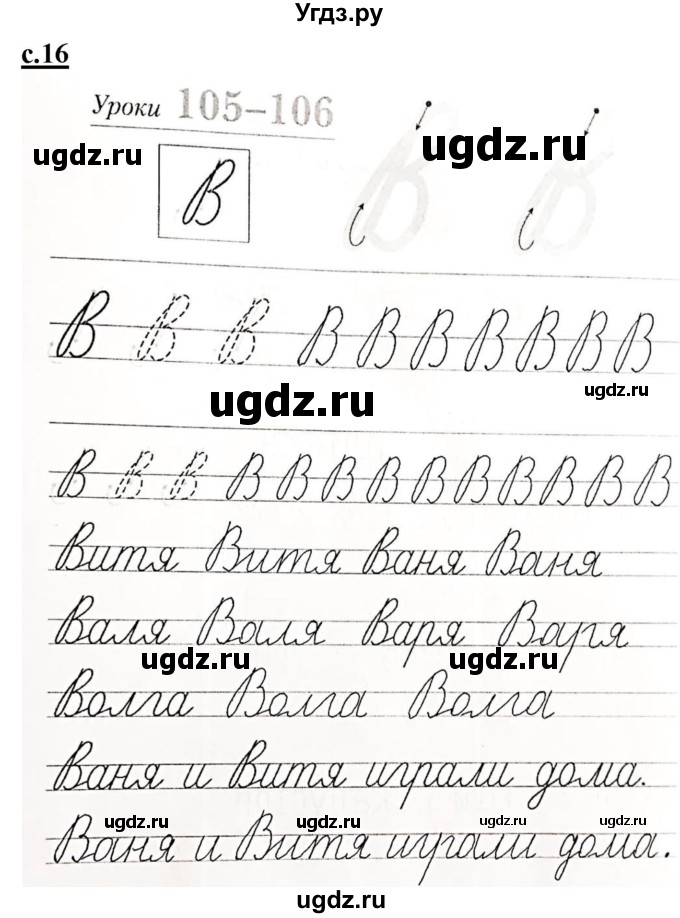 Угдз.ру
с.16
Уроки 105–106
ugdz.ru ugdz.ru
В В В
В В В В В В В В В В
ugdz.ru ugdz.ru
В В В В В В В В В В В В В
Витя Витя Ваня Ваня
Валя Валя Варя Варя
ugdz.ru ugdz.ru
Волга Волга Волга
Ваня и Витя играли дома.
ugdz.ru ugdz.ru ugdz.ru
Ваня и Витя играли дома.
ugdz.ru